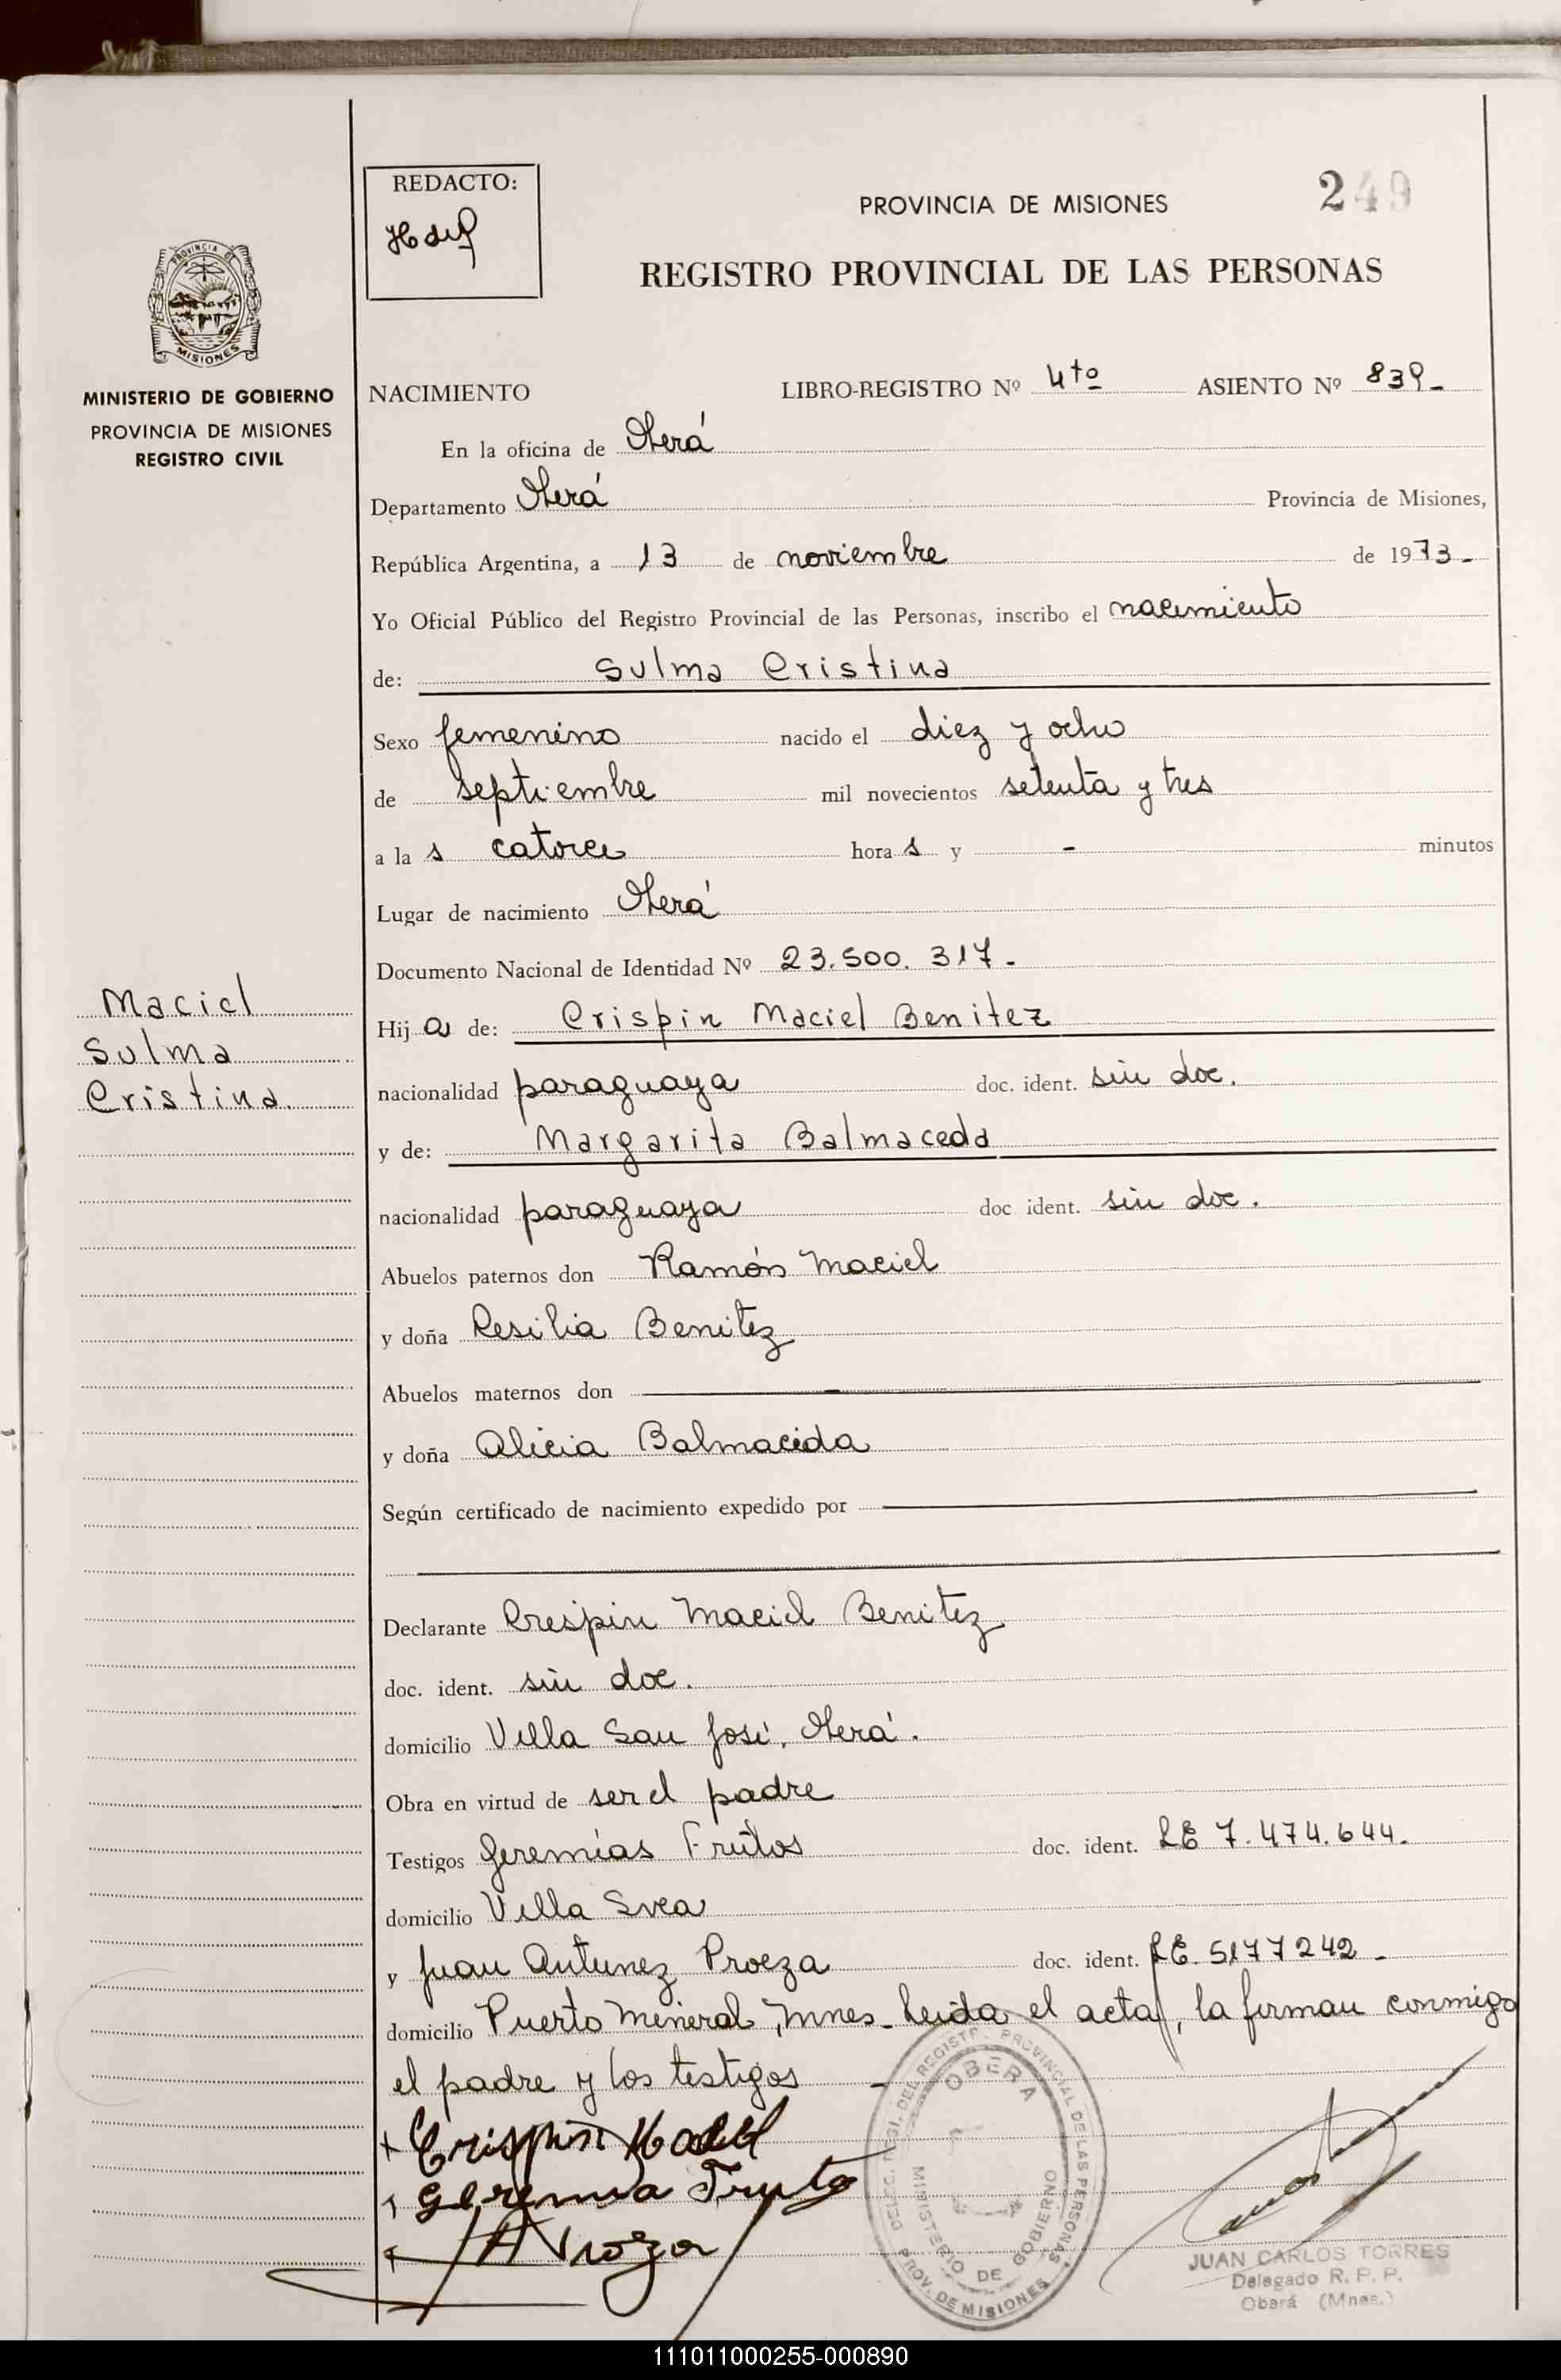 REDACTO:
PROVINCIA DE MISIONES
249
REGISTRO PROVINCIAL DE LAS PERSONAS
PROVINCIA DE
MISIONES
MINISTERIO DE GOBIERNO
PROVINCIA DE MISIONES
REGISTRO CIVIL
NACIMIENTO LIBRO-REGISTRO Nº 4to ASIENTO Nº 839-
En la oficina de Oberá
Departamento Oberá Provincia de Misiones,
República Argentina, a 13 de noviembre de 1973-
Yo Oficial Público del Registro Provincial de las Personas, inscribo el nacimiento
de: Sulma Cristina
Sexo femenino nacido el diez y ocho
de septiembre mil novecientos setenta y tres
a la s catorce hora s y - minutos
Lugar de nacimiento Oberá
Documento Nacional de Identidad Nº 23.500.317-
Maciel
Sulma
Cristina.
Hij a de: Crispin Maciel Benitez
nacionalidad paraguaya doc. ident. sin doc.
y de: Margarita Balmaceda
nacionalidad paraguaya doc ident. sin doc.
Abuelos paternos don Ramón Maciel
y doña Resilia Benitez
Abuelos maternos don
y doña Alicia Balmaceda
Según certificado de nacimiento expedido por
Declarante Crispin Maciel Benitez
doc. ident. sin doc.
domicilio Villa San José, Oberá.
Obra en virtud de ser el padre
Testigos Jeremías Frutos doc. ident. LE 7.474.644.
domicilio Villa Svea
y Juan Antunez Proeza doc. ident. LE. 5177242-
domicilio Puerto Mineral, Mnes- Leida el acta, la firman conmigo
el padre y los testigos -
Crispin Maciel
Geremia Fruto
DELEC. REGI. DEL REGISTR. PROVINCIAL DE LAS PERSONAS
OBERA
MINISTERIO DE GOBIERNO
PROV. DE MISIONES
JUAN CARLOS TORRES
Delegado R. P. P.
Oberá (Mnes.)
111011000255-000890